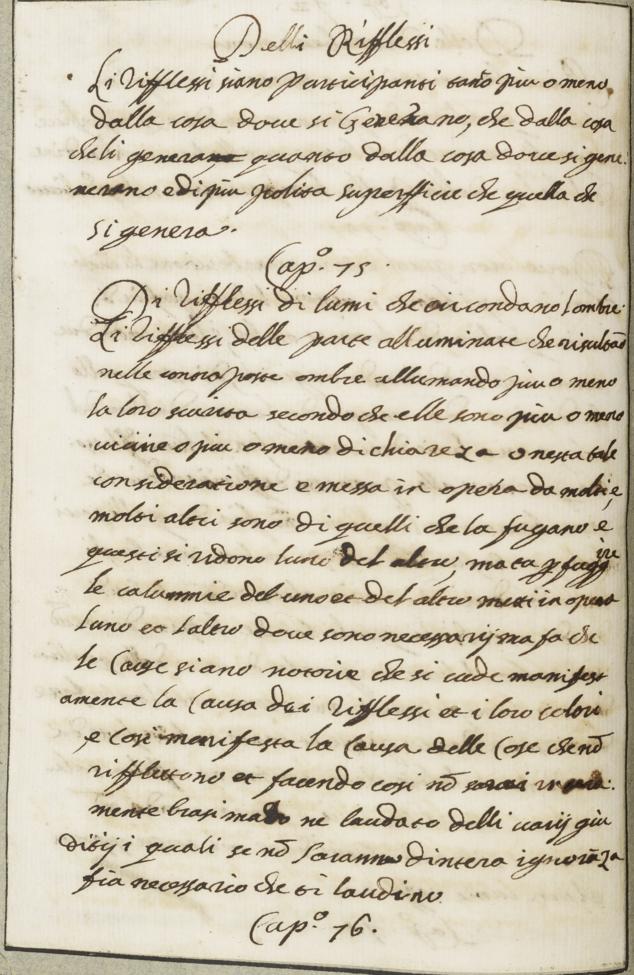 Delli Rifflessi
Li rifflessi siano participanti tãto piu o meno
dalla cosa dove si Generano, che dalla cosa
che li generano quanto dalla cosa dove si gene:
nerano e di piu polita superfficie che quella che
si genera.
Cap.º 75
Di rifflessi di lumi che circondano lombre:
Li rifflessi delle parte alluminate che risultão
nelle contra poste ombre allumando piu o meno
la loro scurita secondo che elle sono piu o meno
vicine o piu o meno di chiareza onesta tale
consideratione e messa in opera da molti, e
molti altri sono di quelli che la fugano e
questi si ridono luno del altro, ma ta p fuggire
le calumnie del uno et del altro metti in opera
luno et laltro dove sono necessarij ma fa che
le Cause siano notorie che si vede manifest
amente la Causa dei rifflessi et i loro colori
e cosi manifesta la Causa delle Cose che nõ
rifflettono et facendo cosi nõ sarai
mente biasimato ne laudato delli varij giu
ditij i quali se nõ Saranno dintera ignorãza
fia necessario che ti laudino
Cap.º 76.